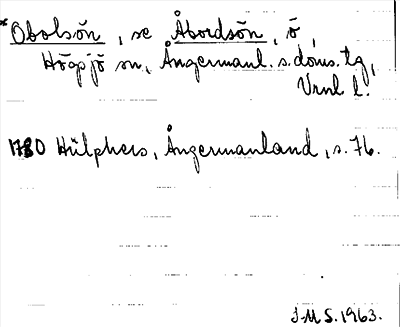 *Obolsön, se Åbordsön, ö,
Högsjö sn, Ångermanl. s. doms. tg,
Vrnl l.
1780 Hülphers, Ångermanland, s. 76.
J.M.S. 1963.